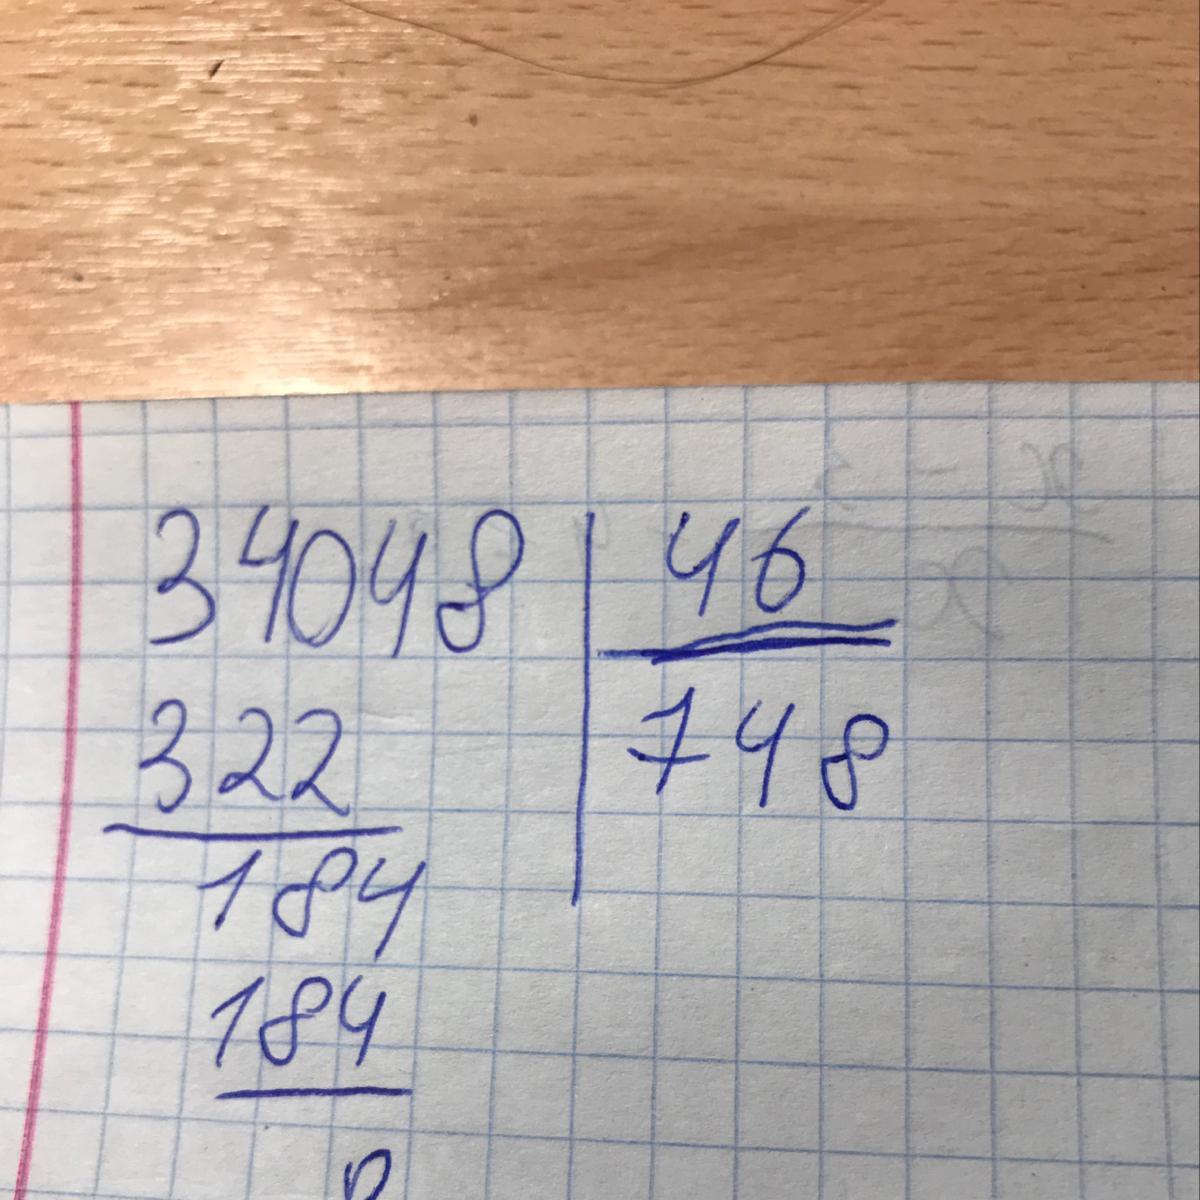 34048 46
322 748
184
184